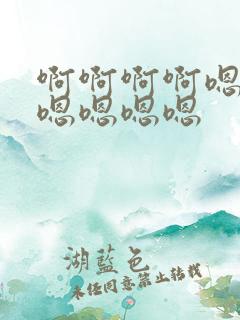 啊啊啊啊嗯
嗯嗯嗯嗯
湖蓝色
未经同意禁止转载